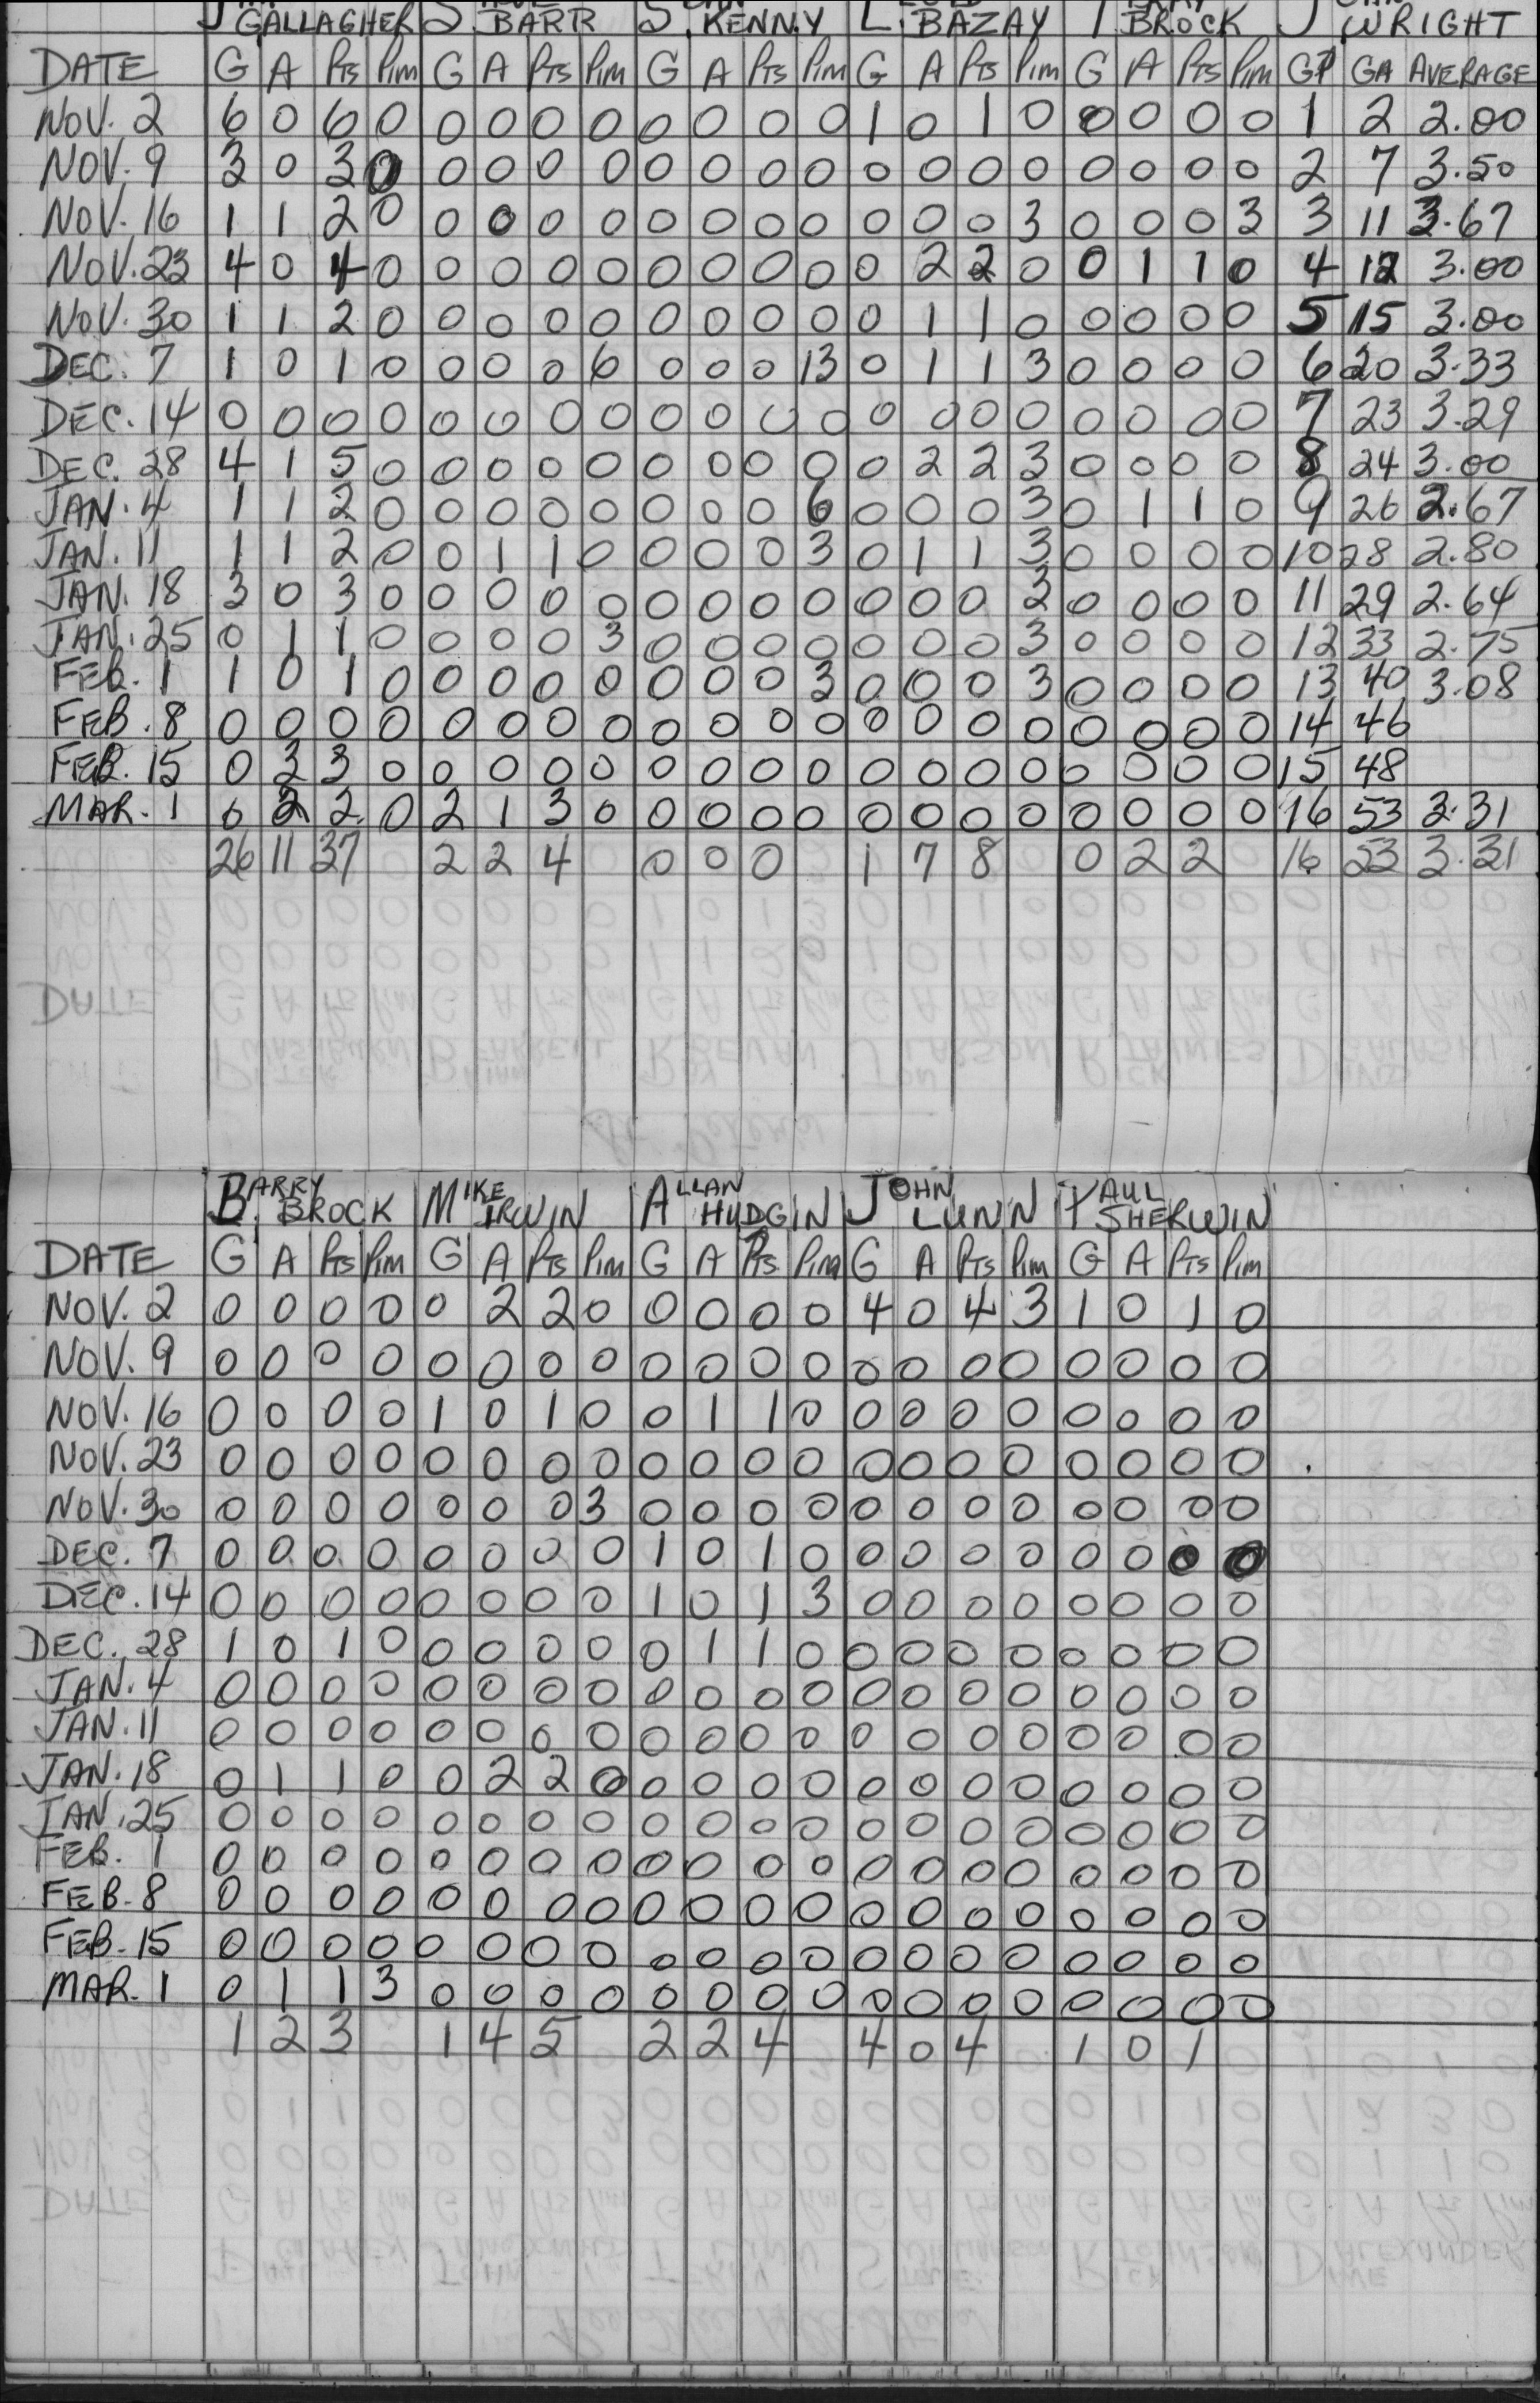 GALLAGHER BARR KENNY BAZAY BROCK WRIGHT
DATE G A Pts Pim G A Pts Pim G A Pts Pim G A Pts Pim G A Pts Pim GP GA AVERAGE
NOV. 2 6 0 6 0 0 0 0 0 0 0 0 0 1 0 1 0 0 0 0 0 1 2 2.00
NOV. 9 3 0 3 0 0 0 0 0 0 0 0 0 0 0 0 0 0 0 0 0 2 7 3.50
NOV. 16 1 1 2 0 0 0 0 0 0 0 0 0 0 0 0 3 0 0 0 3 3 11 3.67
NOV. 23 4 0 4 0 0 0 0 0 0 0 0 0 0 2 2 0 0 1 1 0 4 12 3.00
NOV. 30 1 1 2 0 0 0 0 0 0 0 0 0 0 1 1 0 0 0 0 0 5 15 3.00
DEC. 7 1 0 1 0 0 0 0 6 0 0 0 13 0 1 1 3 0 0 0 0 6 20 3.33
DEC. 14 0 0 0 0 0 0 0 0 0 0 0 0 0 0 0 0 0 0 0 0 7 23 3.29
DEC. 28 4 1 5 0 0 0 0 0 0 0 0 0 0 2 2 3 0 0 0 0 8 24 3.00
JAN. 4 1 1 2 0 0 0 0 0 0 0 0 6 0 0 0 3 0 1 1 0 9 26 2.67
JAN. 11 1 1 2 0 0 1 1 0 0 0 0 3 0 1 1 3 0 0 0 0 10 28 2.80
JAN. 18 3 0 3 0 0 0 0 0 0 0 0 0 0 0 0 3 0 0 0 0 11 29 2.64
JAN. 25 0 1 1 0 0 0 0 3 0 0 0 0 0 0 0 3 0 0 0 0 12 33 2.75
FEB. 1 1 0 1 0 0 0 0 0 0 0 0 3 0 0 0 3 0 0 0 0 13 40 3.08
FEB. 8 0 0 0 0 0 0 0 0 0 0 0 0 0 0 0 0 0 0 0 0 14 46
FEB. 15 0 3 3 0 0 0 0 0 0 0 0 0 0 0 0 0 0 0 0 0 15 48
MAR. 1 0 2 2 0 2 1 3 0 0 0 0 0 0 0 0 0 0 0 0 0 16 53 3.31
26 11 37 2 2 4 0 0 0 1 7 8 0 2 2 16 53 3.31
BARRY BROCK MIKE IRWIN ALLAN HUDGIN JOHN LUNN PAUL SHERWIN
DATE G A Pts Pim G A Pts Pim G A Pts Pim G A Pts Pim G A Pts Pim
NOV. 2 0 0 0 0 0 2 2 0 0 0 0 0 4 0 4 3 1 0 1 0
NOV. 9 0 0 0 0 0 0 0 0 0 0 0 0 0 0 0 0 0 0 0 0
NOV. 16 0 0 0 0 1 0 1 0 0 1 1 0 0 0 0 0 0 0 0 0
NOV. 23 0 0 0 0 0 0 0 0 0 0 0 0 0 0 0 0 0 0 0 0
NOV. 30 0 0 0 0 0 0 0 3 0 0 0 0 0 0 0 0 0 0 0 0
DEC. 7 0 0 0 0 0 0 0 0 1 0 1 0 0 0 0 0 0 0 0 0
DEC. 14 0 0 0 0 0 0 0 0 1 0 1 3 0 0 0 0 0 0 0 0
DEC. 28 1 0 1 0 0 0 0 0 0 1 1 0 0 0 0 0 0 0 0 0
JAN. 4 0 0 0 0 0 0 0 0 0 0 0 0 0 0 0 0 0 0 0 0
JAN. 11 0 0 0 0 0 0 0 0 0 0 0 0 0 0 0 0 0 0 0 0
JAN. 18 0 1 1 0 0 2 2 0 0 0 0 0 0 0 0 0 0 0 0 0
JAN. 25 0 0 0 0 0 0 0 0 0 0 0 0 0 0 0 0 0 0 0 0
FEB. 1 0 0 0 0 0 0 0 0 0 0 0 0 0 0 0 0 0 0 0 0
FEB. 8 0 0 0 0 0 0 0 0 0 0 0 0 0 0 0 0 0 0 0 0
FEB. 15 0 0 0 0 0 0 0 0 0 0 0 0 0 0 0 0 0 0 0 0
MAR. 1 0 1 1 3 0 0 0 0 0 0 0 0 0 0 0 0 0 0 0 0
1 2 3 1 4 5 2 2 4 4 0 4 1 0 1